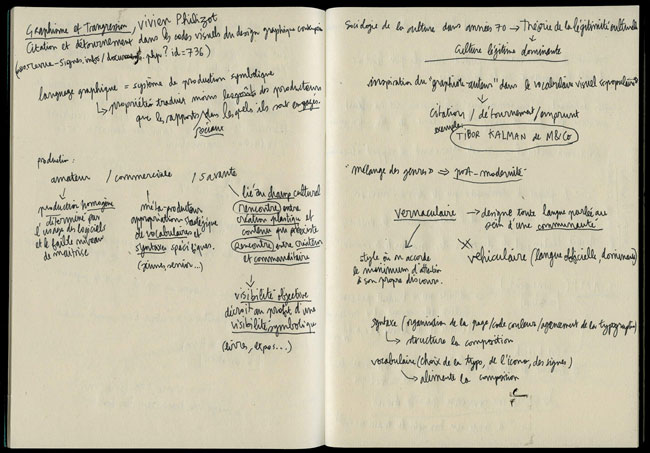 Graphisme et Transgression, vivien Philizot
Citation et détournement dans les codes visuels du design graphique contemporain
(revue-signes.info/document.php?id=736)
langage graphique = système de production symbolique
↳ propriétés traduisent moins les goûts des producteurs
que les rapports dans lesquels ils sont engagés
sociaux
production :
amateur / commerciale / savante
production homogène
déterminée par
l'usage des logiciels
et le faible niveau
de maîtrise
méta-producteur
appropriation stratégique
de vocabulaires et
syntaxe spécifiques.
(jeunes, senior...)
lié au champ culturel
rencontre entre
création plastique et
contenu qui préexiste
rencontre entre créateur
et commanditaire
visibilité objective
décroit au profit d'une
visibilité symbolique
(livres, expos...)
Sociologie de la culture dans années 70 → Théorie de la légitimité culturelle
Culture légitime dominante
inspiration du "graphiste-auteur" dans le vocabulaire visuel "populaire"
citation / détournement / emprunt
exemple:
TIBOR KALMAN de M&Co
"mélange des genres" => post-modernité
vernaculaire → désigne toute langue parlée au
sein d'une communauté
≠ véhiculaire (langue officielle, dominante)
style où on accorde
le minimum d'attention
à son propre discours.
syntaxe (organisation de la page/code couleurs/agencement de la typographie)
↳ structure la composition
vocabulaire (choix de la typo, de l'icono, des signes)
↳ alimente la composition